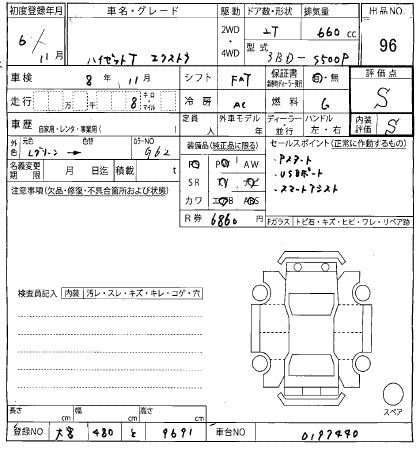 初度登録年月 車名・グレード 駆動 ドア数・形状 排気量 出品NO.
6 / 11月 ハイゼットT エクストラ 2WD ・ 4WD 2T 660 cc 96
型式 3BD-S500P
車検 8年 11月 シフト FAT 保証書 有・無 評価点
走行 万 千 8 キロ・マイル 冷房 AC 燃料 G S
車歴 自家用・レンタ・事業用( ) 定員 人 外車モデル 年 ディーラー・並行 ハンドル 左・右 内装評価 S
外色 元色 色替 カラーNO G62
装備品(純正品に限る) セールスポイント(正常に作動するもの)
名義変更期限 月 日迄 積載 t
PS PW AW ・Pスタート
注意事項(欠品・修復・不具合箇所および状態)
SR TV ナビ ・USBポート
カワ エアB ABS ・スマートアシスト
R券 6860円
Fガラス トビ石・キズ・ヒビ・ワレ・リペア跡
検査員記入 内装 汚レ・スレ・キズ・キレ・コゲ・穴
スペア
長さ cm 幅 cm 高さ cm
登録NO 大宮 480 と 9691 車台NO 0197440